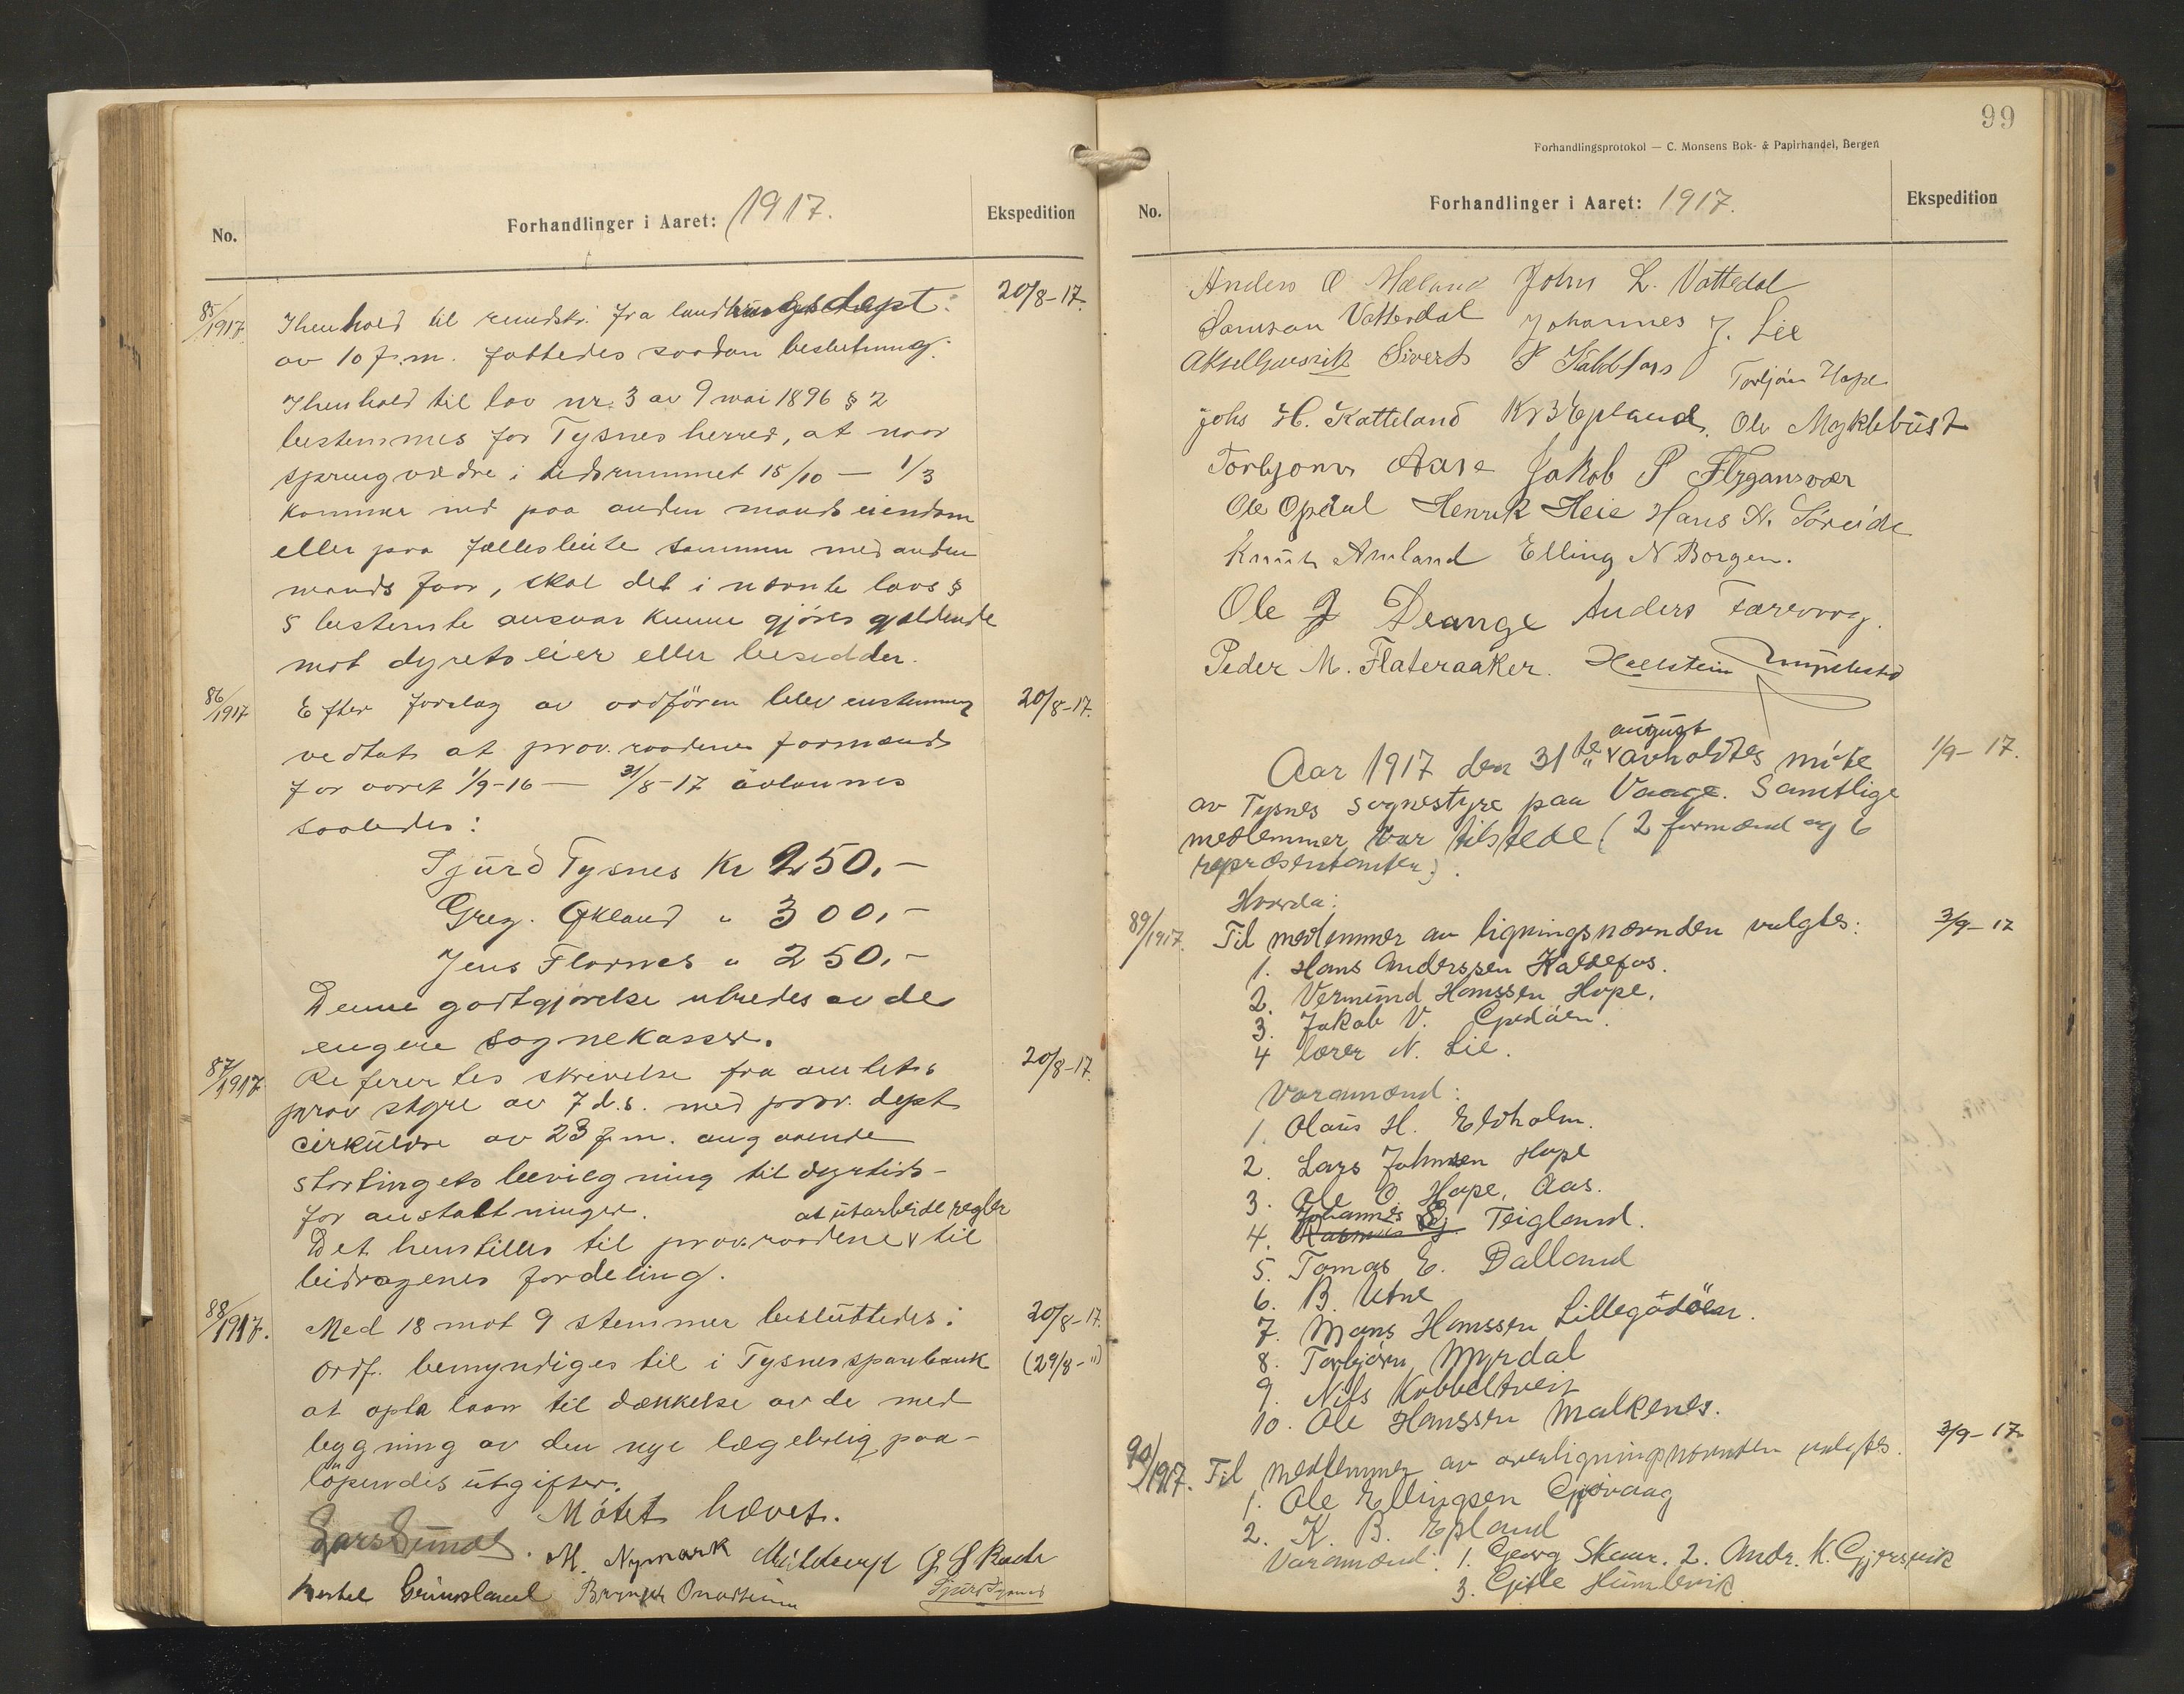 Forhandlinger i Aaret: 1917.
No.
Ekspedition
85/1917
I henhold til rundskr. fra landbruksdept.
20/8-17.
av 10 f.m. fattedes saadan beslutning:
I henhold til lov nr. 3 av 9 mai 1896 § 2
bestemmes for Tysnes herred, at naar
sprengvædre i tidsrummet 15/10 — 1/3
kommer ind paa anden mands eiendom
eller paa fællesbeite sammen med anden
mands faar, skal det i nævnte lovs §
5 bestemte ansvar kunne gjøres gjældende
mot dyrets eier eller besidder.
86/1917
Efter forslag av ordfören blev enstemmig
20/8-17.
vedtat at prov. raadenes formænd
for aaret 1/9-16 — 31/8-17 avlönnes
saaledes:
Sjurd Tysnes Kr 250.-
Greg. Økland " 300.-
Jens Flornes " 250.-
Denne godtgjørelse utredes av de
engere sognekasser.
87/1917
Refertes skrivelse fra amtets
20/8-17.
prov styre av 7 d.s. med prov. dept
cirkülære av 23 f.m. angaaende
stortingets bevilgning til dyrtids-
foranstaltninger.
at utarbeide regler
Det henstilles til prov. raadene til
bidragenes fordeling.
88/1917.
Med 18 mot 9 stemmer besluttedes:
20/8-17.
ordf. bemyndiges til i Tysnes sparebank
(29/8-")
at opta laan til dækkelse av de med
bygning av den nye lægebolig paa-
löpendis utgifter.
Mötet hævet.
Lars Sunde. M. Nymark Mühlberg G S Rach
Bertel Grimsland Brynjel Onarheim Sjurd Tysnes
99
Forhandlingsprotokol — C. Monsens Bok- & Papirhandel, Bergen
No.
Forhandlinger i Aaret: 1917.
Ekspedition
Anders O Mæland John L. Vattedal
Samson Vattedal Johannes J. Lie
Aksel Gjersvik Sivert S Kaldefoss Torbjörn Hope
Johs H. Katteland Kr B Epland. Ole Myklebust
Torbjorn Aase Jakob P Flygansvær
Ole Opdal Henrik Heie Hans N. Söreide
Knut Amland Elling N Borgen.
Ole J Drange Anders Færevaag.
Peder M. Flateraaker. Hallstein
august
Aar 1917 den 31te avholdtes möte
1/9-17.
av Tysnes sognestyre paa Vaage. Samtlige
medlemmer var tilstede (2 formænd og 6
repræsentanter).
Hvorda:
89/1917.
Til medlemmer av ligningsnævnden valgtes:
3/9-17
1. Hans Anderssen Kaldefos.
2. Vermund Hanssen Hope.
3. Jakob V. Gjedöen.
4 lærer N. Lie.
Varamænd:
1. Olaus H. Eldholm.
2. Lars Johnsen Hope
3. Ole O. Hope, Aas.
Johannes
4. Rasmus Gj. Teigland.
5. Tomas E. Dalland
6. B. Utne
7. Mons Hanssen Lillegödöen.
8. Torbjörn Myrdal
9. Nils Kobbeltveit
10. Ole Hanssen Malkenes.
90/1917.
Til medlemmer av overligningsnævnden valgtes.
3/9-17.
1. Ole Ellingsen Gjövaag
2. K. B. Epland
Varamænd: 1. Georg Skaar. 2. Andr. K. Gjersvik
3. Gitle Humlevik